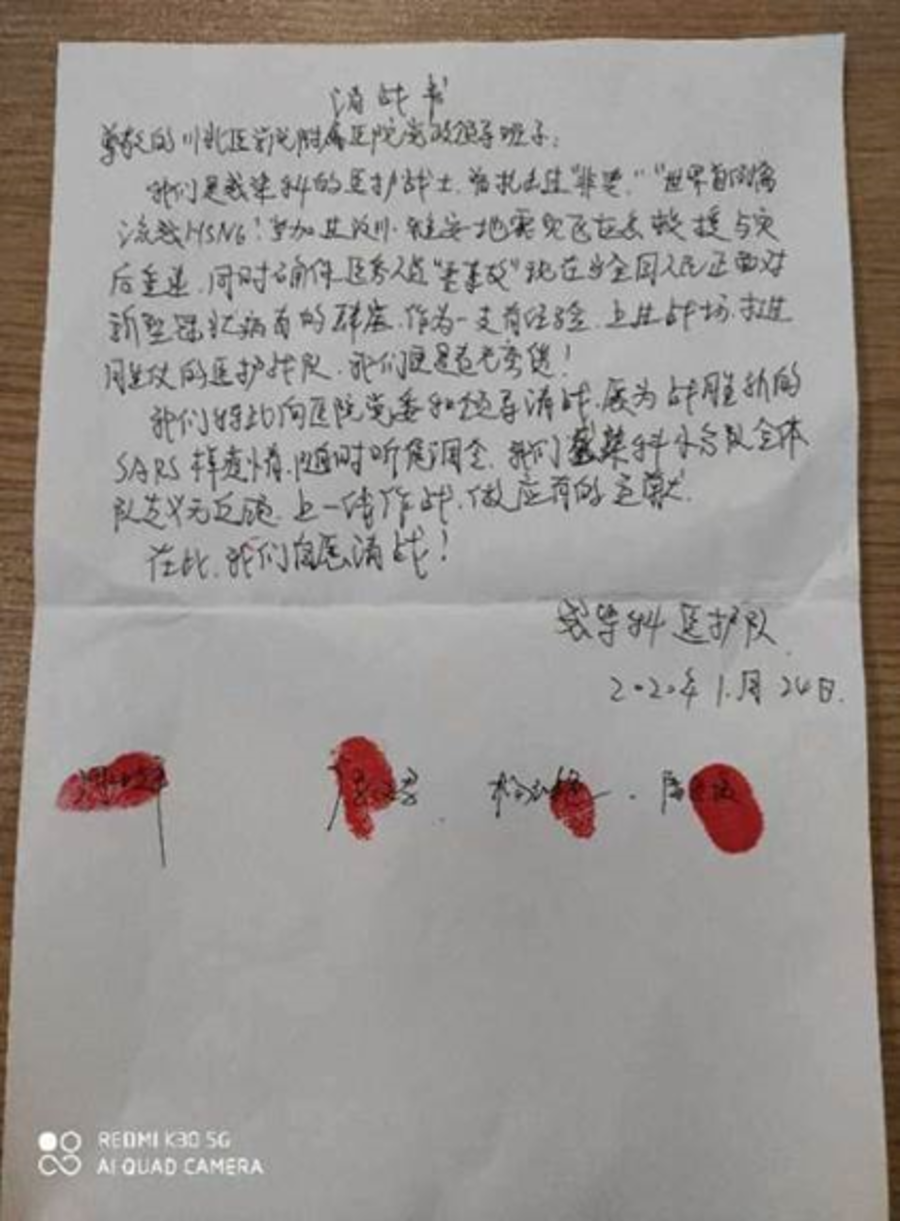 请战书
尊敬的川北医学院附属医院党政领导班子:
我们是感染科的医护战士,曾抗击过"非典","世界首例禽
流感H5N6"!参加过汶川、雅安地震灾区医疗救援与灾
后重建,同时确保医务人员"零事故"现在当全国人民正面对
新型冠状病毒的肆虐,作为一支有经验、上过战场、打过
胜仗的医护战队,我们更是责无旁贷!
我们特此向医院党委和领导请战,愿为战胜新的
SARS样疫情,随时听候调令,我们感染科小分队全体
队员义无反顾,上一线作战,做应有的贡献.
在此,我们自愿请战!
感染科医护队
2020年1月24日.
REDMI K30 5G
AI QUAD CAMERA